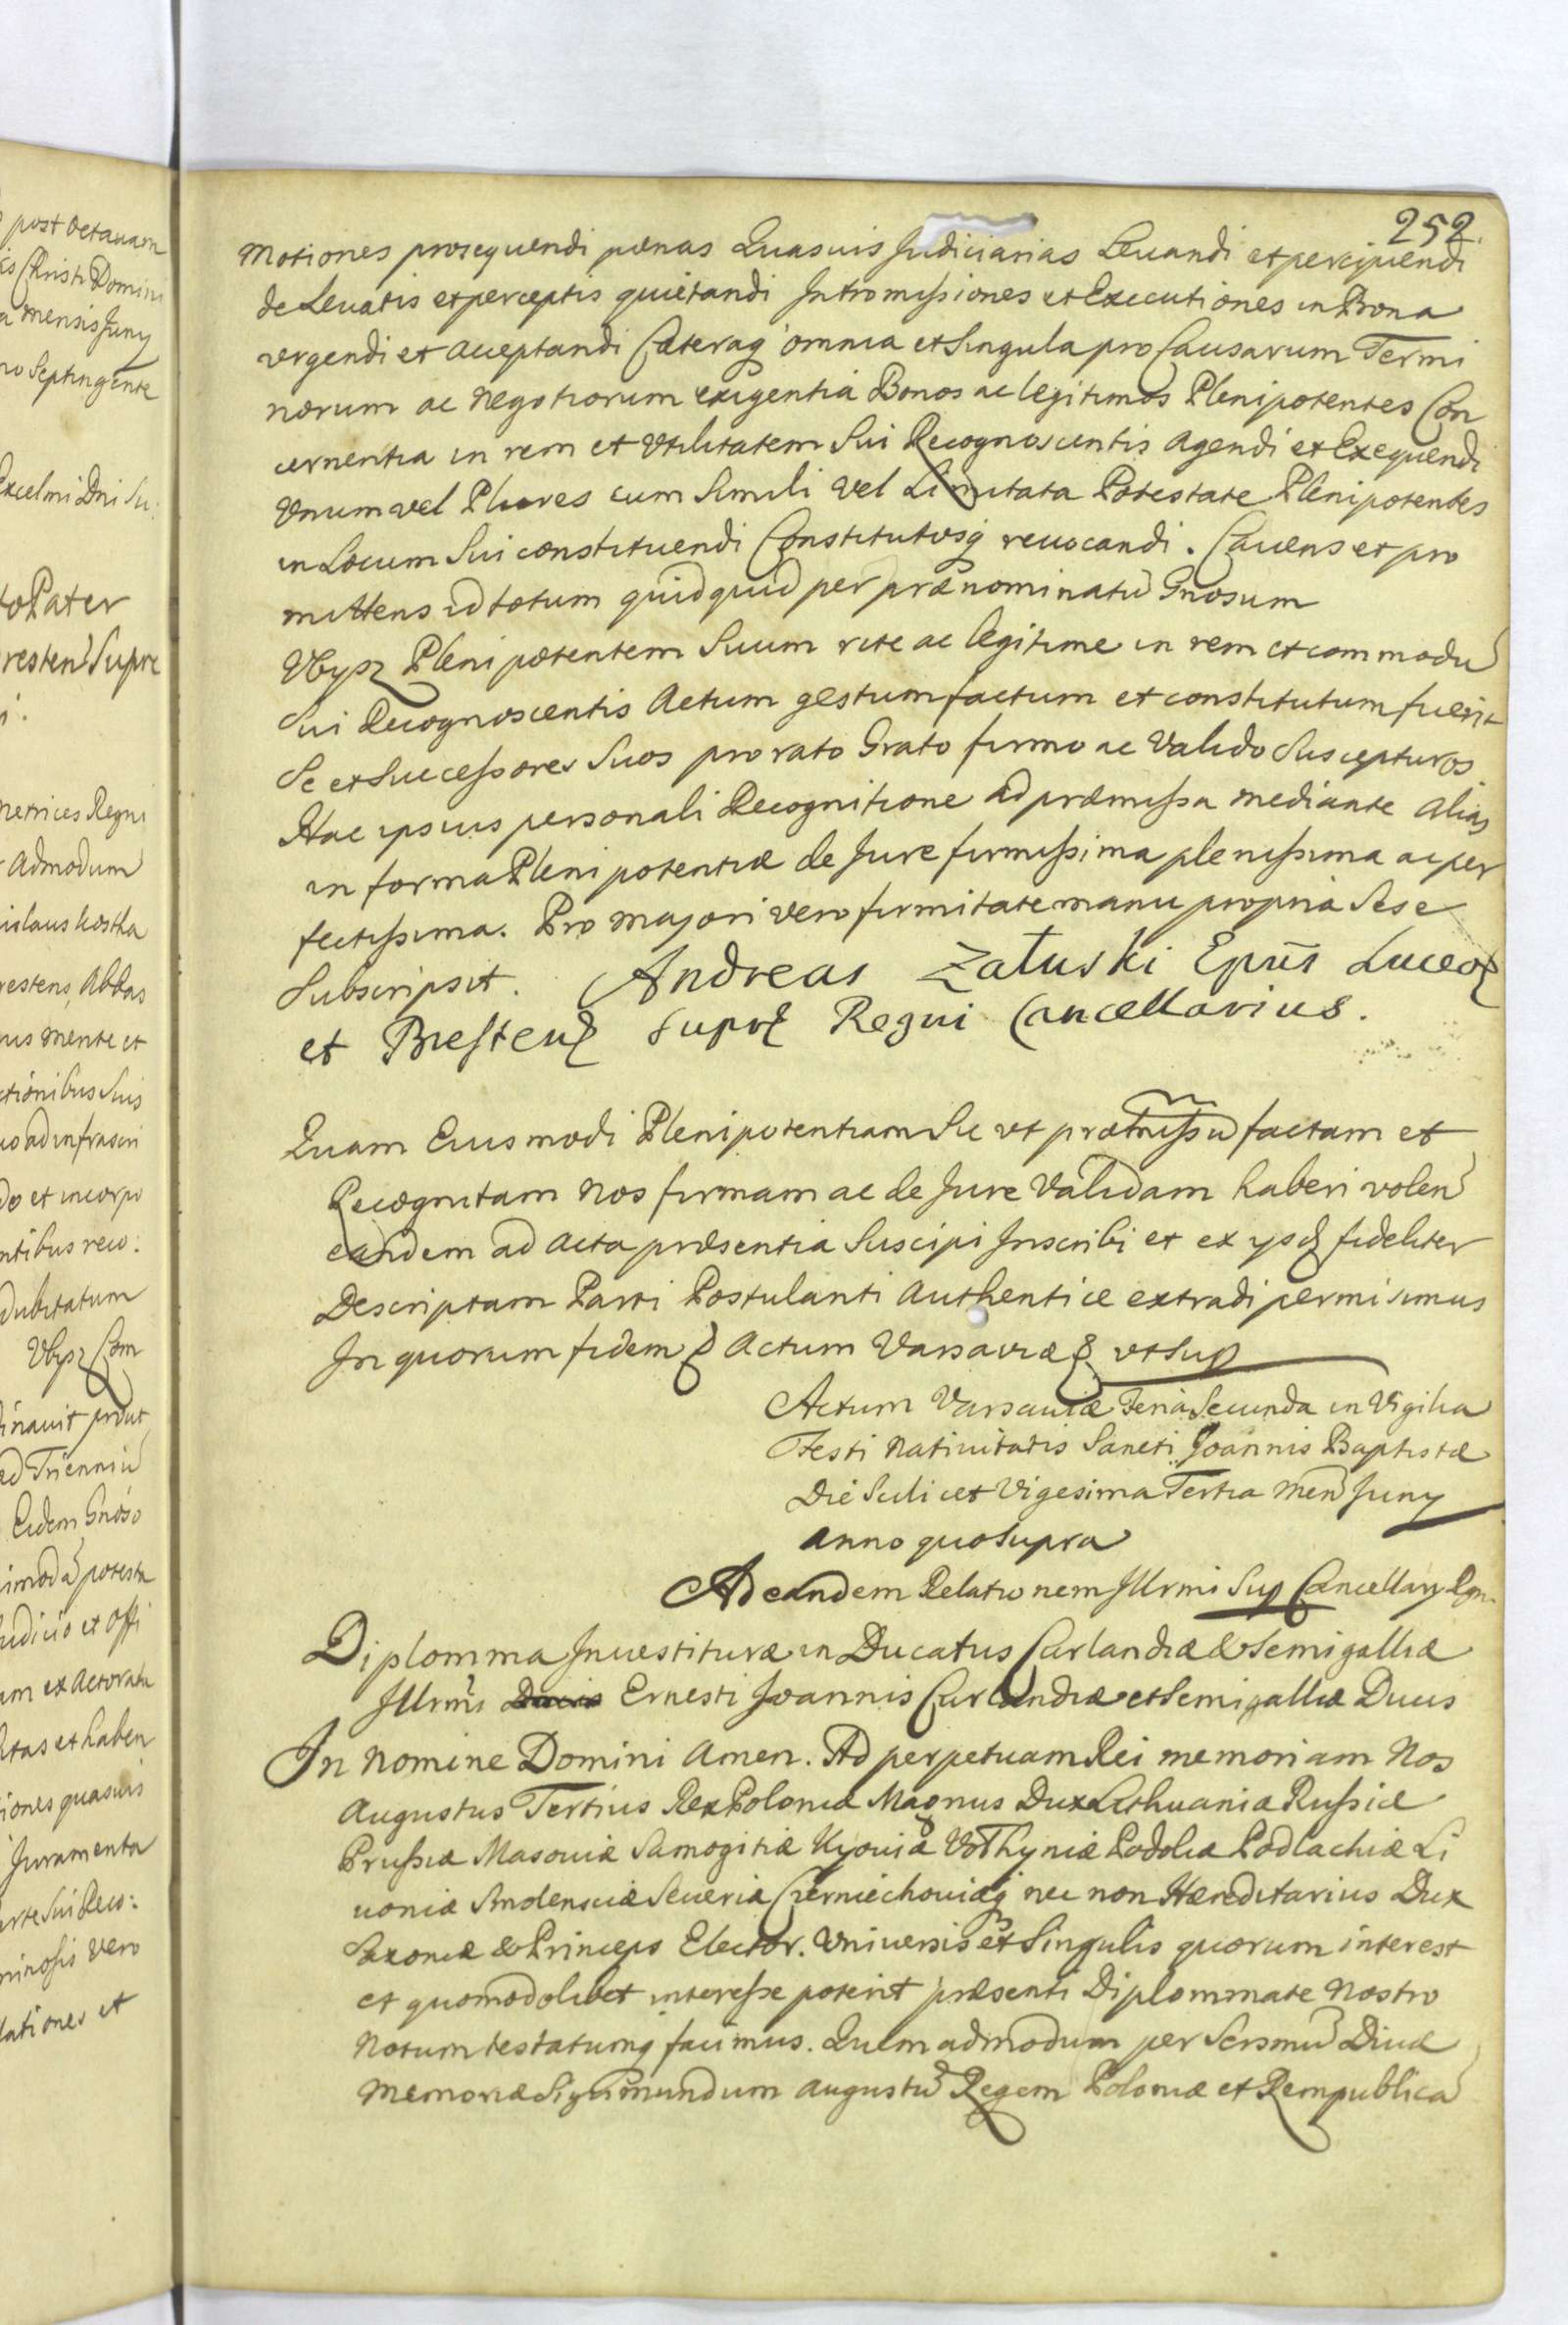 post octauam
is Christi Domini
a mensis Juny
no Septingente
Excelmi Dni Su:
to Pater
resten Supre
netrices Regni
Admodum
islaus kostka
restens, Abbas
us mente et
ctionibus Suis
uo ad infrascri
do et incorpo
ntibus reco:
dubitatum
Vbysz Com
dinauit prout
ad Trienniu
Eidem Gnoso
imoda potesta
udicio et offi
um ex Actoratu
tas et haben
iones quasuis
Juramenta
arte Sui Reco:
minosis vero
lationes et
252.
Motiones prosequendi pœnas Quasuis Judiciarias Leuandi et percipiendi
de Leuatis et perceptis quietandi Intromissiones et Executiones in Bona
vrgendi et acceptandi Cæteraq omnia et Singula pro Causarum Termi
norum ac Negotiorum exigentia Bonos ac legitimos Plenipotentes Con
cernentia in rem et vtilitatem Sui Recognoscentis agendi et Exequendi
Vnum vel Plures cum Simili vel Limitata Potestate Plenipotentes
in Locum Sui constituendi Constitutosq reuocandi. Cauens et pro
mittens id totum quidquid per prænominatu Gnosum
Vbysz Plenipotentem Suum rite ac legitime in rem et commodu
Sui Recognoscentis Actum gestum factum et constitutum fuerit
Se et Successores Suos pro rato Grato firmo ac Valido Suscepturos
Hac ipsius personali Recognitione ad præmissa mediante alias
in forma Plenipotentiæ de Jure firmissima plenissima ac per
fectissima. Pro majori vero firmitate manu propria Sese
Subscripsit. Andreas Załuski Epūs Luceo
et Bresten Supr Regni Cancellarius.
Quam Eiusmodi Plenipotentiam Sic vt præmissu factam et
Recognitam Nos firmam ac de Jure Validam haberi volen
eandem ad Acta præsentia Suscipi Inscribi et ex ysd fideliter
Descriptam Parti Postulanti Authentice extradi permisimus
In quorum fidem Actum Varsauiæ vt Sup
Actum Varsauiæ Feria Secunda in Vigilia
Festi Natiuitatis Sancti Joannis Baptistæ
Die Scilicet Vigesima Tertia Men Juny
Anno quo Supra
Ad eandem Relationem Illrmi Sup Cancellary Rgn.
Diplomma Inuestituræ in Ducatus Curlandiæ & Semigalliæ
Illrmi Ducis Ernesti Joannis Curlandiæ et Semigalliæ Ducis
In Nomine Domini Amen. Ad perpetuam Rei memoriam Nos
Augustus Tertius Rex Poloniæ Magnus Dux Lithuaniæ Russiæ
Prussiæ Masouiæ Samogitiæ Kyouiæ Volhyniæ Podoliæ Podlachiæ Li
uoniæ Smolensciæ Seueriæ Czerniechouiæq nec non Hæreditarius Dux
Saxoniæ & Princeps Elector. Vniuersis et Singulis quorum interest
et quomodolibet interesse poterit præsenti Diplommate Nostro
Notum testatumq facimus. Quemadmodum per Sersmu Diuæ
Memoriæ Sigismundum Augustu Regem Poloniæ et Rempublica